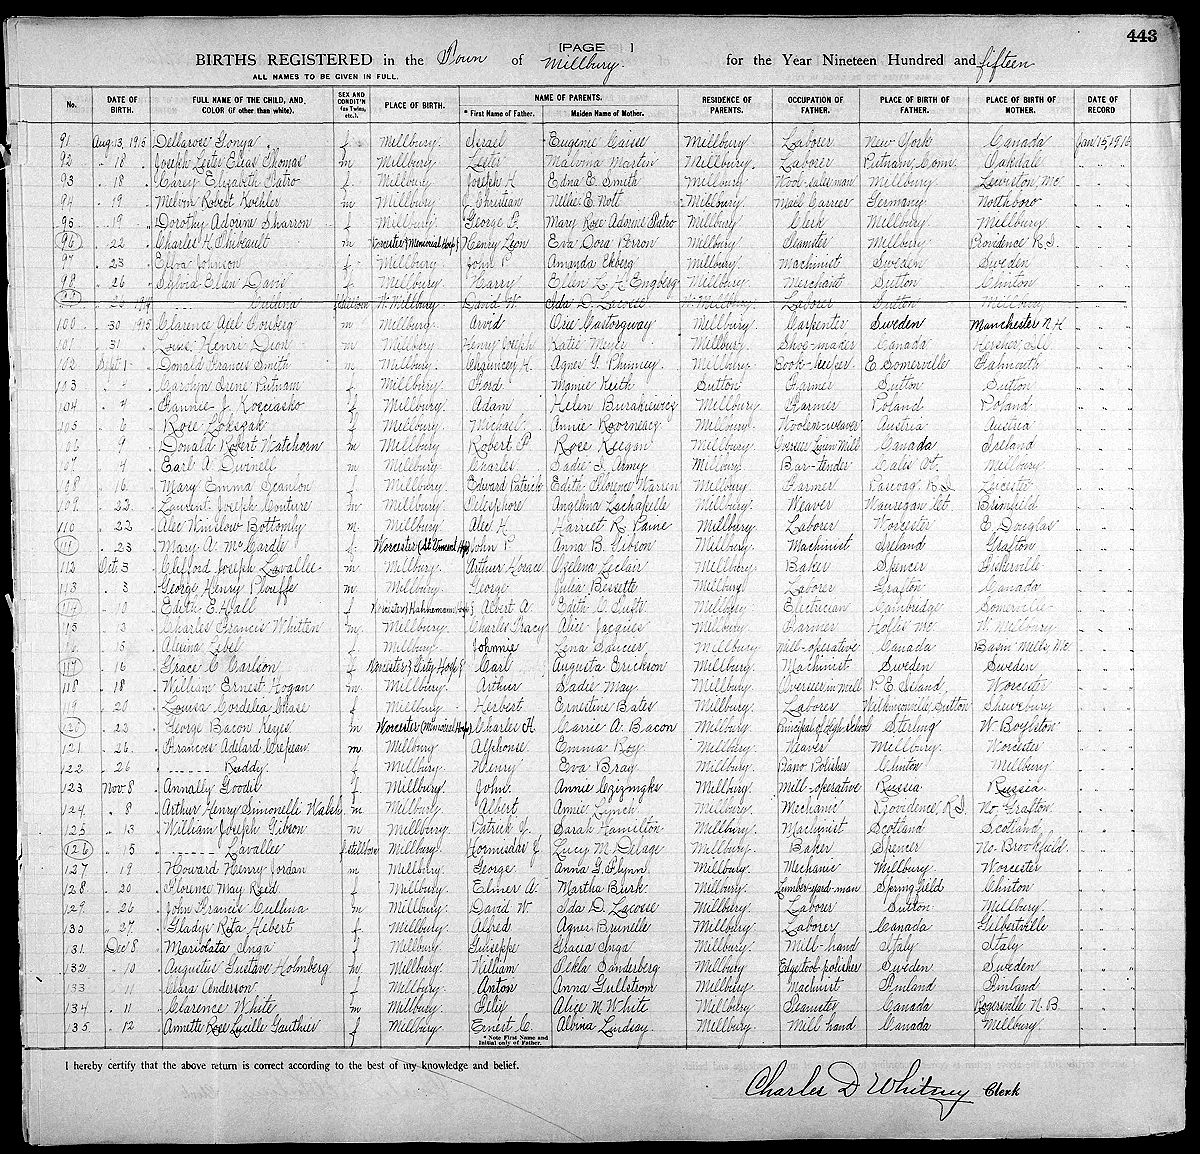 443
[PAGE ]
BIRTHS REGISTERED in the Town of Millbury. for the Year Nineteen Hundred and fifteen
ALL NAMES TO BE GIVEN IN FULL.
No. DATE OF BIRTH. FULL NAME OF THE CHILD, AND, COLOR (if other than white). SEX AND CONDIT'N (as Twins, etc.). PLACE OF BIRTH. NAME OF PARENTS. * First Name of Father. Maiden Name of Mother. RESIDENCE OF PARENTS. OCCUPATION OF FATHER. PLACE OF BIRTH OF FATHER. PLACE OF BIRTH OF MOTHER. DATE OF RECORD
91 Aug. 13, 1915 Dellarose Gonya f Millbury. Israel Eugenie Millbury Laborer New York Canada Jan 15, 1916
92 " 18 " Joseph Elias Thomas m Millbury Malvina Martin Millbury. Laborer Putnam, Conn. Oakdale
93 " 18 " Carey Elizabeth Patro f Millbury Joseph H Edna E. Smith Millbury Wool-salesman Millbury Lewiston, Me
94 " 19 " Melvin Robert Koehler m Millbury J. Christian Nellie E. Nolt Millbury. Mail Carrier Germany Northboro
95 " 19 " Dorothy Adorine Sharron f Millbury George Mary Rose Adorine Patro Millbury Clerk Millbury Millbury
96 " 22 " Charles H. Thibeault m Worcester (Memorial Hosp) Henry Leon Eva Dora Perron Millbury. Teamster Millbury Providence R.I.
97 " 23 " Johnson f Millbury. John Amanda Ekberg Millbury. Machinist Sweden Sweden
98 " 26 " Sylvia Ellen Davis f Millbury Harry Ellen L. H. Engberg Millbury. Merchant Sutton Clinton
99 " 26 W. Millbury David W. Ida D. Lacosse W. Millbury Laborer Sutton Millbury
100 " 30 1915 Clarence Axel m Millbury. Arvid Millbury. Carpenter Sweden Manchester N.H
101 " 31 " Henri Dion m Millbury. Henry Joseph Katie Meyer Millbury Shoe-maker Canada
102 Sept. 1 " Donald Francis Smith m Millbury Chauncey H. Agnes G. Phinney. Millbury. Book-keeper E. Somerville Falmouth
103 " " Carolyn Irene Putnam f Millbury. Ford Mamie Keith Sutton Farmer Sutton Sutton
104 " 4 " Fannie J. Kosciasko f Millbury. Adam Helen Burakiewicz Millbury Farmer Poland Poland
105 " 6 " Rose f Millbury. Michael Annie Millbury. Woolen-weaver Austria Austria
106 " 9 " Donald Robert Watchorn m Millbury. Robert P. Rose Keegan Millbury. Overseer Linen Mill Canada Ireland
107 " 4 " Earl A. Dwinell m Millbury. Charles Sadie I. Army Millbury Bar-tender Millbury.
108 " 16 " Mary Emma Scanlon f Millbury. Edward Patrick Edith Florence Warren Millbury. Farmer Pascoag R.I. Leicester
109 " 22 " Laurent Joseph Couture m Millbury. Telesphore Angelina Lachapelle Millbury Weaver Wauregan Ct. Brimfield
110 " 22 " Alec Winslow Bottomly m Millbury Alec H. Harriet R. Paine Millbury. Laborer Worcester E. Douglas
111 " 23 " Mary A. McCardle f Worcester (St Vincent Hosp) John P. Anna B. Gibson Millbury. Machinist Ireland Grafton
112 Oct. 3 " Clifford Joseph Lavallee m Millbury. Arthur Horace Exelena Leclair Millbury. Baker Spencer Fiskeville
113 " 3 " George Henry Plouffe m Millbury. George Julia Bessette Millbury. Laborer Grafton Canada
114 " 10 " Edith E. Hall f Worcester (Hahnemann Hosp) Albert A. Edith Millbury Electrician Cambridge Somerville
115 " 2 " Charles Francis Whitten m Millbury. Charles Tracy Alice Jacques Millbury. Farmer Hollis Me. W. Millbury
116 " 15 " Lebel f Millbury. Johnnie Lena Saucier Millbury. Mill-operative Canada
117 " 16 " Grace C. Carlson f Worcester (City Hosp) Carl Augusta Erickson Millbury. Machinist Sweden Sweden
118 " 18 " William Ernest Hogan m Millbury. Arthur Sadie May. Millbury. Overseer in mill P. E. Island, Worcester
119 " 20 " Louisa Cordelia Chase f Millbury. Herbert Ernestine Bates Millbury. Laborer Wilkinsonville, Sutton Shrewsbury
120 " 22 " George Bacon Keyes m Worcester (Memorial Hosp) Charles H. Carrie A. Bacon Millbury. Principal of High School Sterling W. Boylston
121 " 26 " Francois Adelard Crepeau m Millbury Alphonse. Emma Roy Millbury. Weaver Millbury. Worcester
122 " 26 " Ruddy. f Millbury. Henry Eva Bray Millbury. Piano Polisher Clinton Millbury
123 Nov. 8 " Annally Goodis f Millbury. John Annie Millbury. Mill-operative Russia Russia
124 " 8 " Arthur Henry Simonelli Walsh m Millbury Albert Annie Lynch Millbury. Mechanic Providence, R.I. No. Grafton
125 " 13 " William Joseph Gibson m Millbury. Patrick J. Sarah Hamilton Millbury. Machinist Scotland Scotland
126 " 15 " Lavallee f stillborn Millbury. Hormisdas J. Lucy M. Delage Millbury. Baker Spencer No. Brookfield.
127 " 19 " Howard Henry Jordan m Millbury. George Anna G. Flynn Millbury. Mechanic Millbury. Worcester
128 " 20 " Florence May Reid f Millbury. Elmer A. Martha Burk. Millbury. Lumber-yard-man Springfield Clinton
129 " 26 " John Francis Cullina m Millbury. David W. Ida D. Lacosse Millbury. Laborer Sutton. Millbury.
130 " 27 " Gladys Rita Hebert f Millbury. Alfred Agnes Brunelle Millbury. Laborer Canada Gilbertville
131 Dec 8 " Inga f Millbury. Guiseppe Gracia Inga Millbury. Mill-hand Italy Italy
132 " 10 " Augustus Gustave Holmberg m Millbury. William Sanderberg Millbury. Edgetool-polisher Sweden Sweden
133 " 11 " Clara Anderson f Millbury. Anton Anna Gullstrom Millbury. Machinist Finland Finland
134 " 11 " Clarence White m Millbury. Alice M. White Millbury. Teamster Canada Rogersville N.B.
135 " 12 " Annette Rose Lucille Gauthier f Millbury Ernest C. Albina Lindsay. Millbury. Mill hand Canada Millbury.
* Note First Name and Initial only of Father.
I hereby certify that the above return is correct according to the best of my knowledge and belief.
Charles D Whitney Clerk